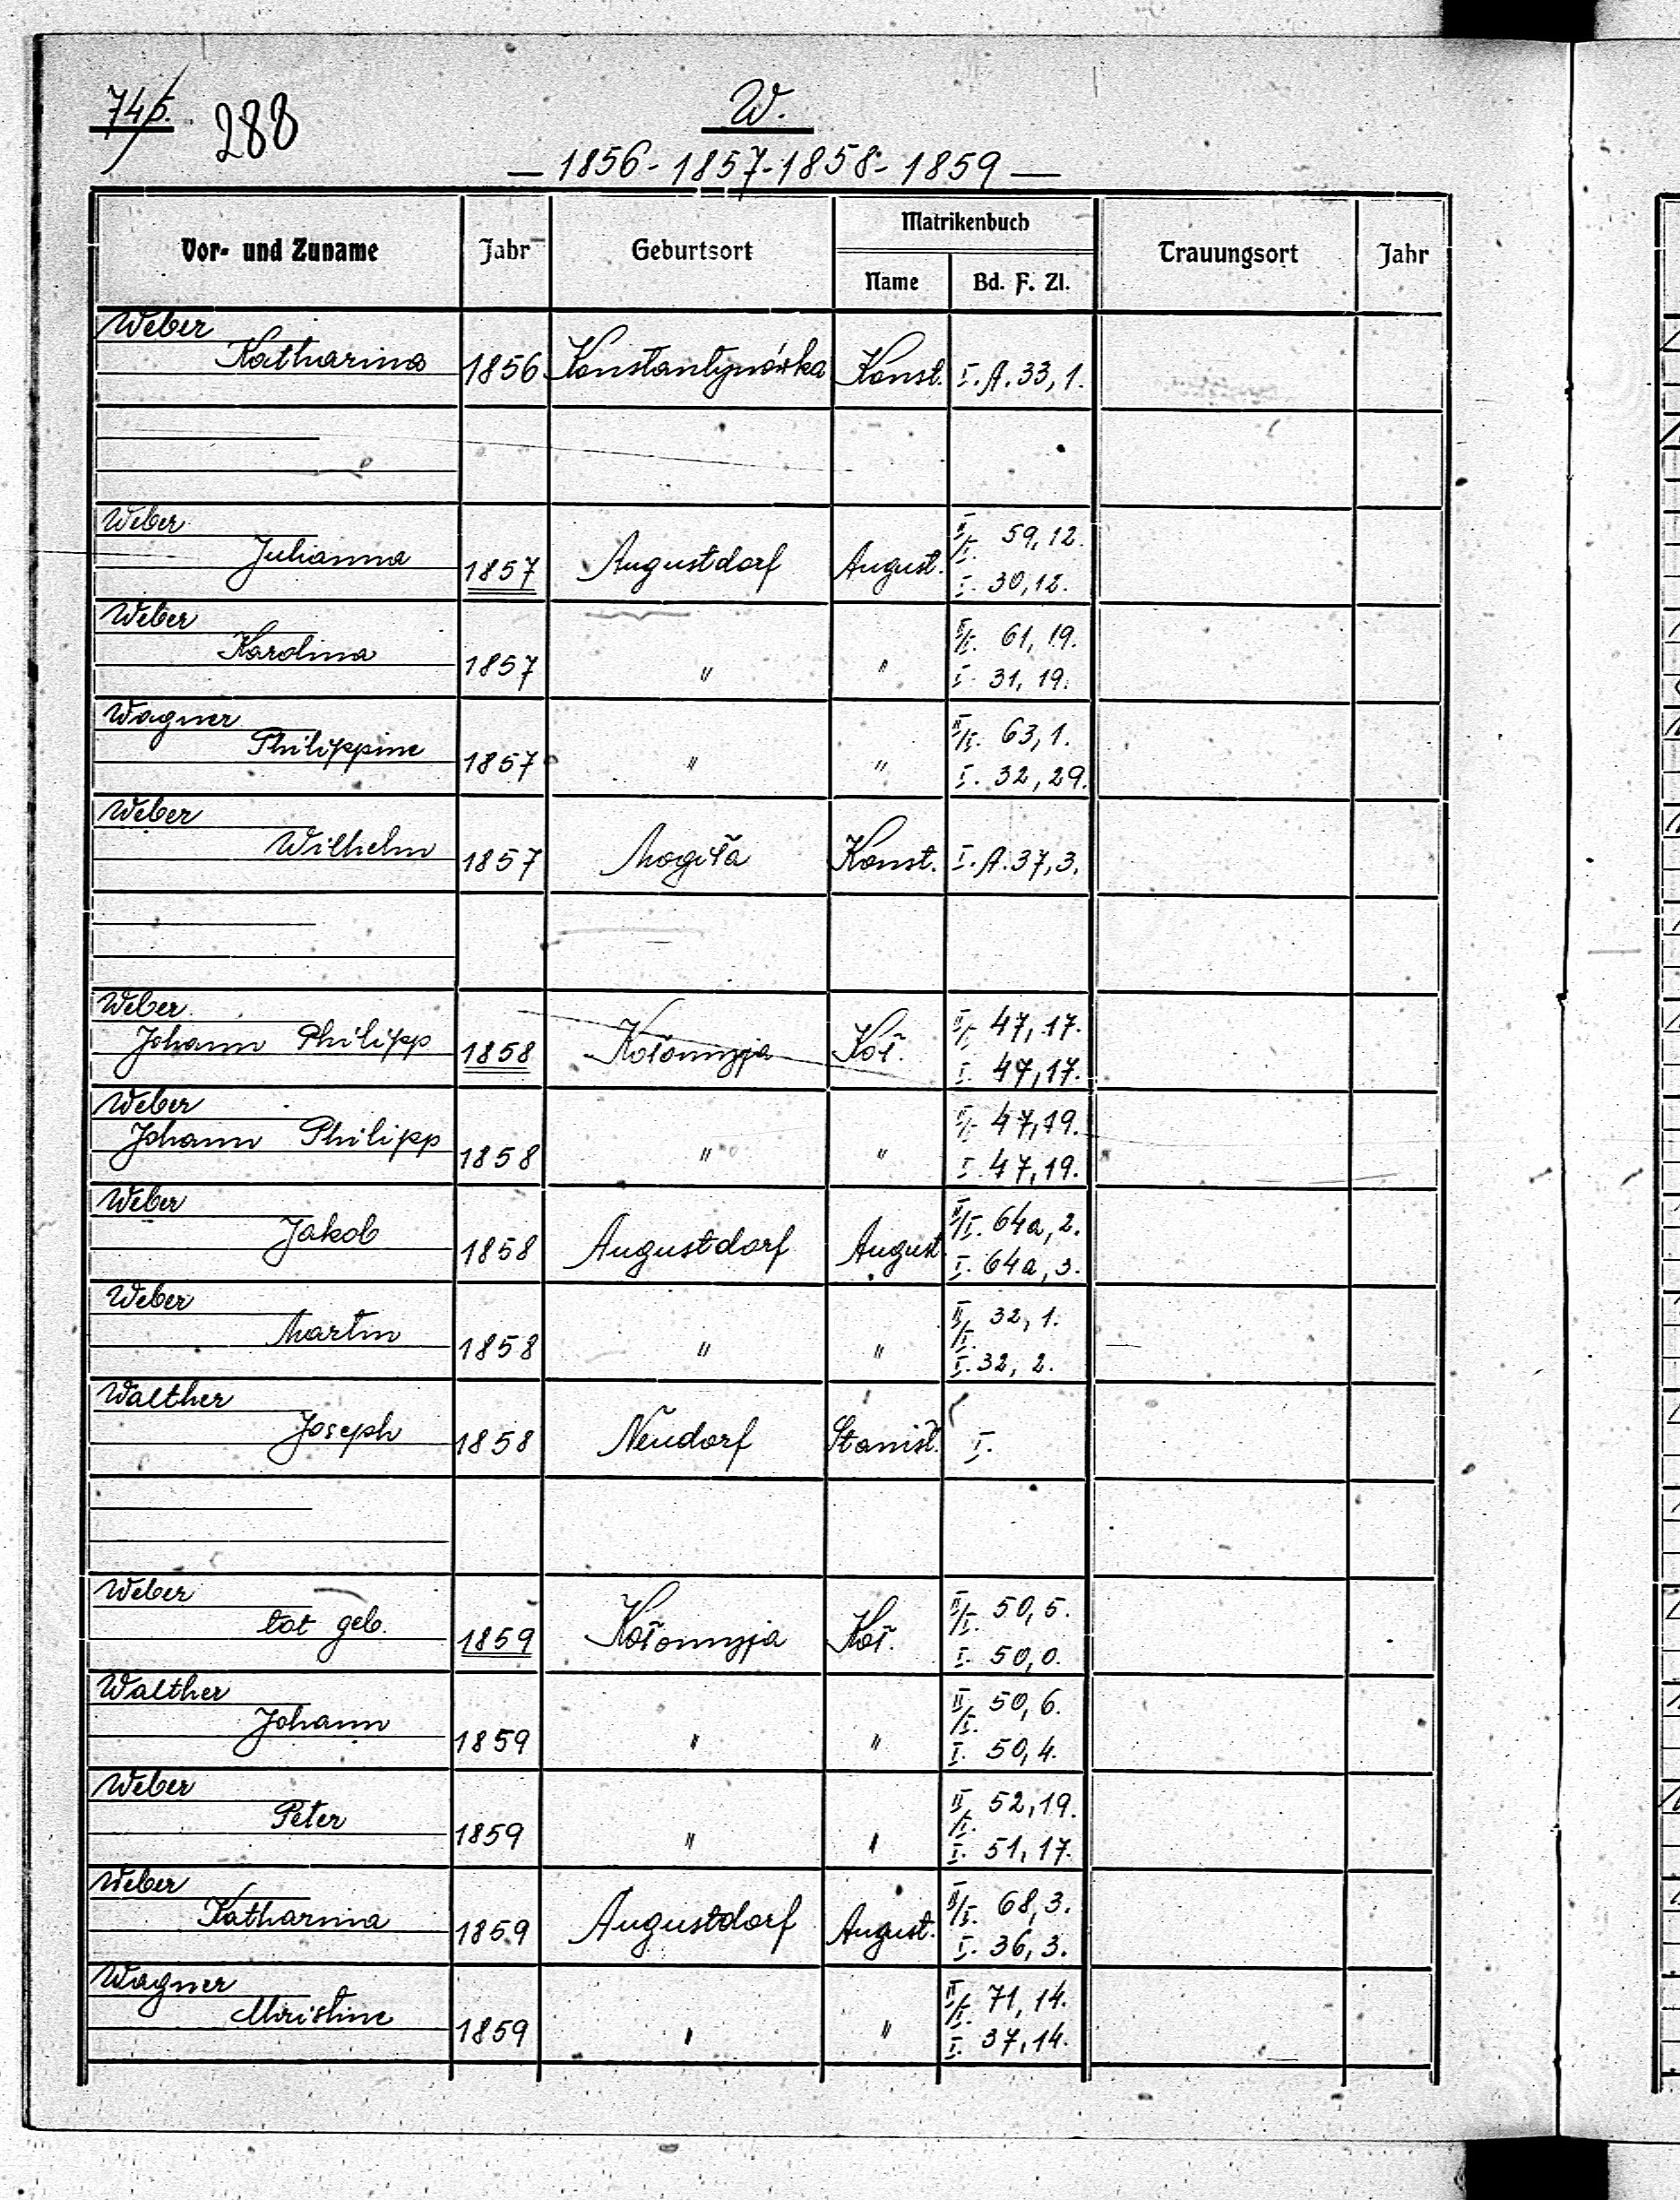 745. 288 W.
— 1856 - 1857 - 1858 - 1859 —
Matrikenbuch
Vor- und Zuname Jahr Geburtsort Name Bd. F. Zl. Trauungsort Jahr
Weber
Katharina 1856 Konstantynówka Konst. I. A. 33, 1.
Weber II/I. 59, 12.
Julianna 1857 Augustdorf August. I. 30, 12.
Weber II/I. 61, 19.
Karolina 1857 " " I. 31, 19.
Wagner II/I. 63, 1.
Philippine 1857 " " I. 32, 29.
Weber
Wilhelm 1857 Mogiła Konst. I. A. 37, 3.
Weber II/I. 47, 17.
Johann Philipp 1858 Kołomyja Koł. I. 47, 17.
Weber II/I. 47, 19.
Johann Philipp 1858 " " I. 47, 19.
Weber II/I. 64a, 2.
Jakob 1858 Augustdorf August. I. 64a, 3.
Weber II/I. 32, 1.
Martin 1858 " " I. 32, 2.
Walther
Joseph 1858 Neudorf Stanisł. I.
Weber II/I. 50, 5.
tot geb. 1859 Kołomyja Koł. I. 50, 0.
Walther II/I. 50, 6.
Johann 1859 " " I. 50, 4.
Weber II/I. 52, 19.
Peter 1859 " " I. 51, 17.
Weber II/I. 68, 3.
Katharina 1859 Augustdorf August. I. 36, 3.
Wagner II/I. 71, 14.
Christine 1859 " " I. 37, 14.